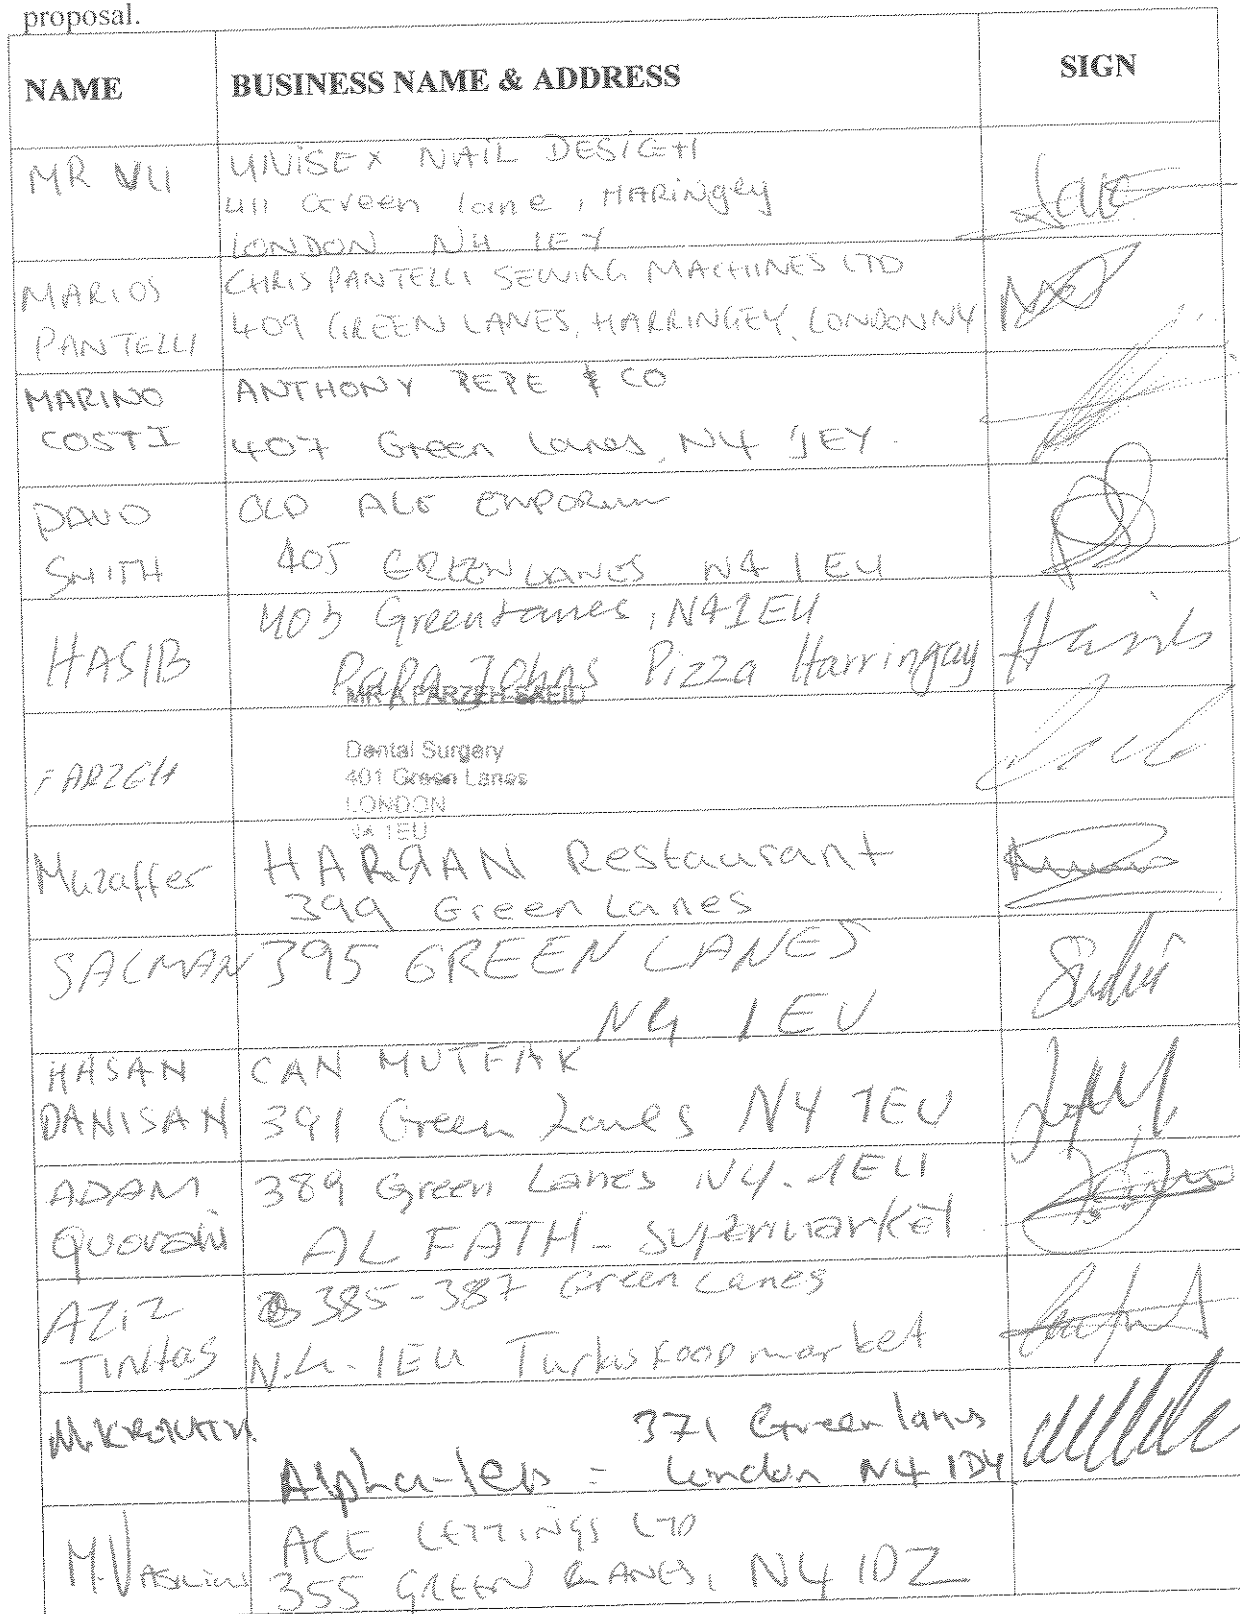 proposal.
NAME BUSINESS NAME & ADDRESS SIGN
MR VU UNISEX NAIL DESIGH
411 Green lane, HARINgey
LONDON N4 1EY
MARIOS PANTELLI CHRIS PANTELLI SEWING MACHINES LTD
409 GREEN LANES, HARRINGEY, LONDON N4
MARINO COSTI ANTHONY PEPE & CO
407 Green Lanes, N4 1EY.
SMITH OLD ALE EMPORIUM
405 GREEN LANES N4 1EU
HASIB 403 Green Lanes, N4 1EU
PaPa Johns Pizza Harringay
MR A FARZEH-SAEID
FARZEH Dental Surgery
401 Green Lanes
LONDON
N4 1EU
Muzaffer HARRAN Restaurant
399 Green Lanes
SALMAN 395 GREEN LANES
N4 1EU
HASAN DANISAN CAN MUTFAK
391 Green Lanes N4 1EU
ADAM 389 Green Lanes N4. 1EU
AL FATH - Supermarket
AZiZ TINtas 385-387 Green Lanes
N.4-1EU Turkis Food market
371 Green lanes
Alpha-lets = London N4 1DY
ACE LETTINGS LTD
355 GREEN LANES, N4 1DZ